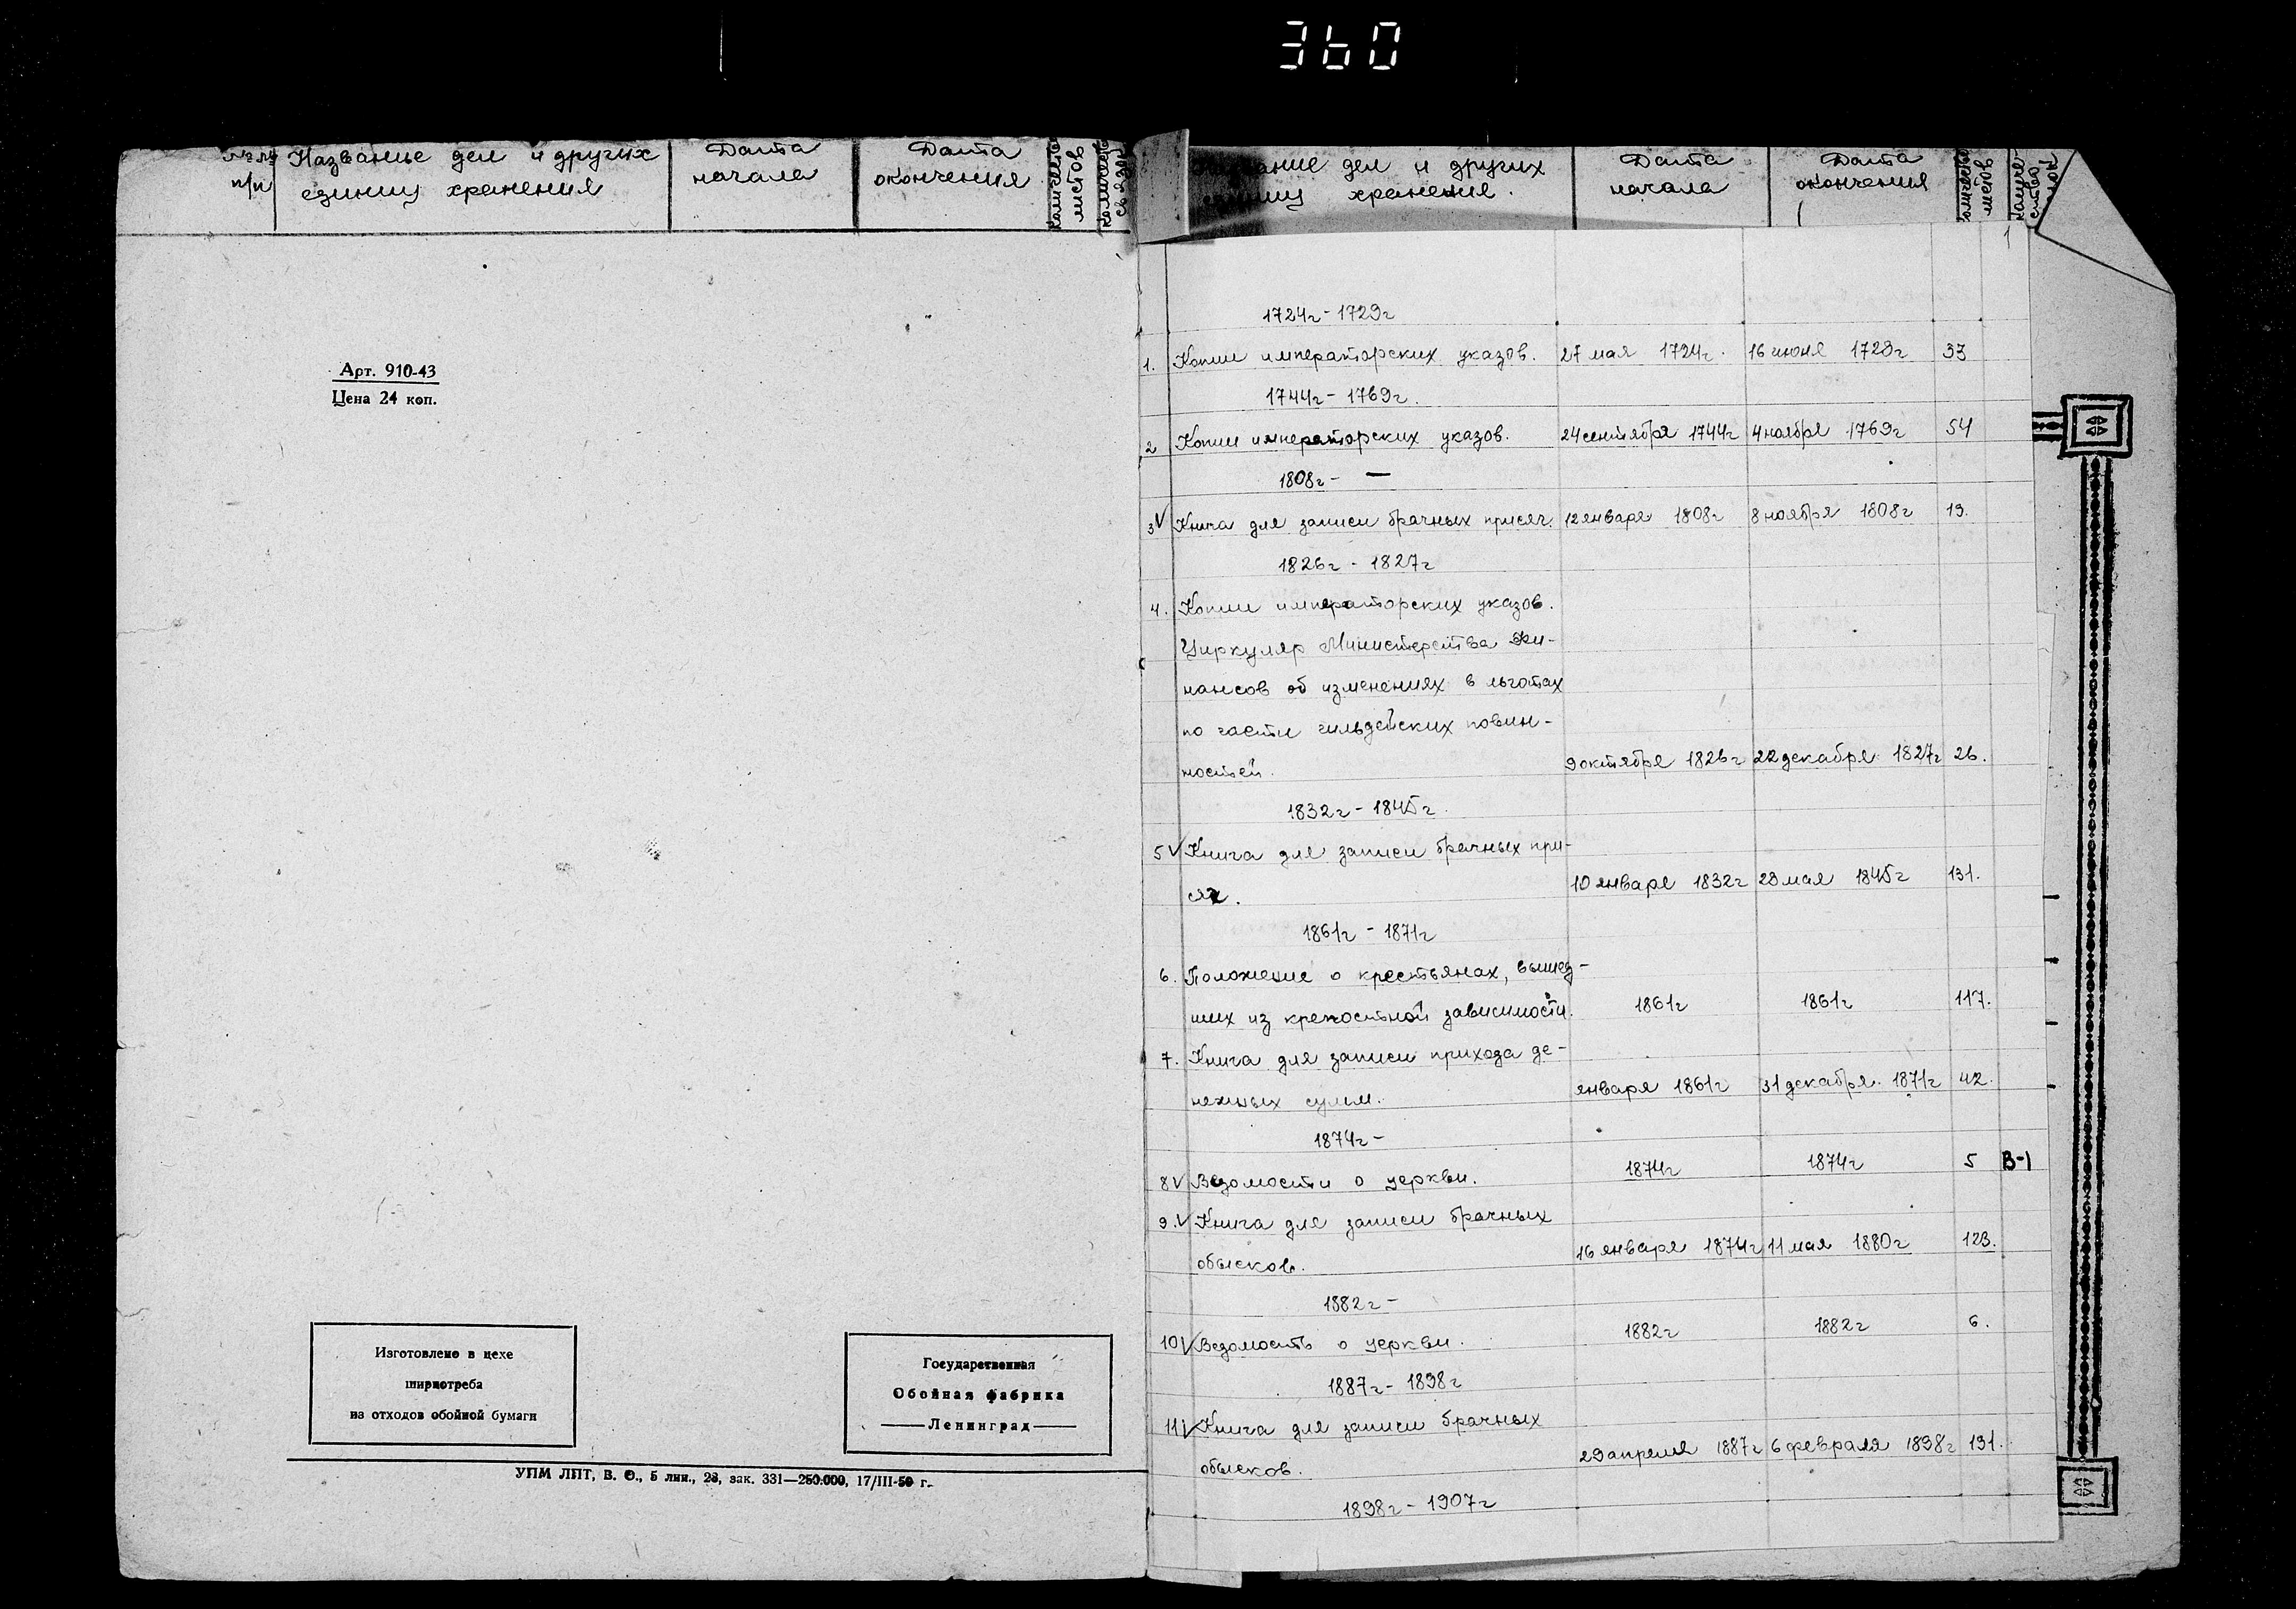 360
№№ Название дел и других Дата Дата Количество листов
п/п единиц хранения начала окончения
Арт. 910-43
Цена 24 коп.
Изготовлено в цехе
ширпотреба
из отходов обойной бумаги
Государственная
Обойная фабрика
Ленинград
УПМ ЛПТ, В. О., 5 лин., 28, зак. 331—250.000, 17/III-50 г.
Название дел и других Дата Дата
единиц хранения. начала окончения
1
1724г - 1729г
1. Копии императорских указов. 27 мая 1724г. 16 июня 1729г 33
1744г - 1769г.
2 Копии императорских указов. 24 сентября 1744г 4 ноября 1769г 54
1808г - —
3 V Книга для записи брачных присяг. 12 января 1808г 8 ноября 1808г 19.
1826г - 1827г
4. Копии императорских указов.
Циркуляр Министерства Фи-
нансов об изменениях в льготах
по части гильдейских повин-
ностей. 9 октября 1826г 22 декабря 1827г 26.
1832г - 1845г.
5 V Книга для записи брачных при-
сяг. 10 января 1832г 23 мая 1845г 131.
1861г - 1871г
6. Положение о крестьянах, вышед-
ших из крепостной зависимости. 1861г 1861г 117.
7. Книга для записи прихода де-
нежных сумм. января 1861г 31 декабря 1871г 42.
1874г -
8 V Ведомости о церкви. 1874г 1874г 5 В-1
9. V Книга для записи брачных
обысков. 16 января 1874г 11 мая 1880г 123.
1882г -
10 V Ведомость о церкви. 1882г 1882г 6.
1887г - 1898г
11 V Книга для записи брачных
обысков. 29 апреля 1887г 6 февраля 1898г 131.
1898г - 1907г